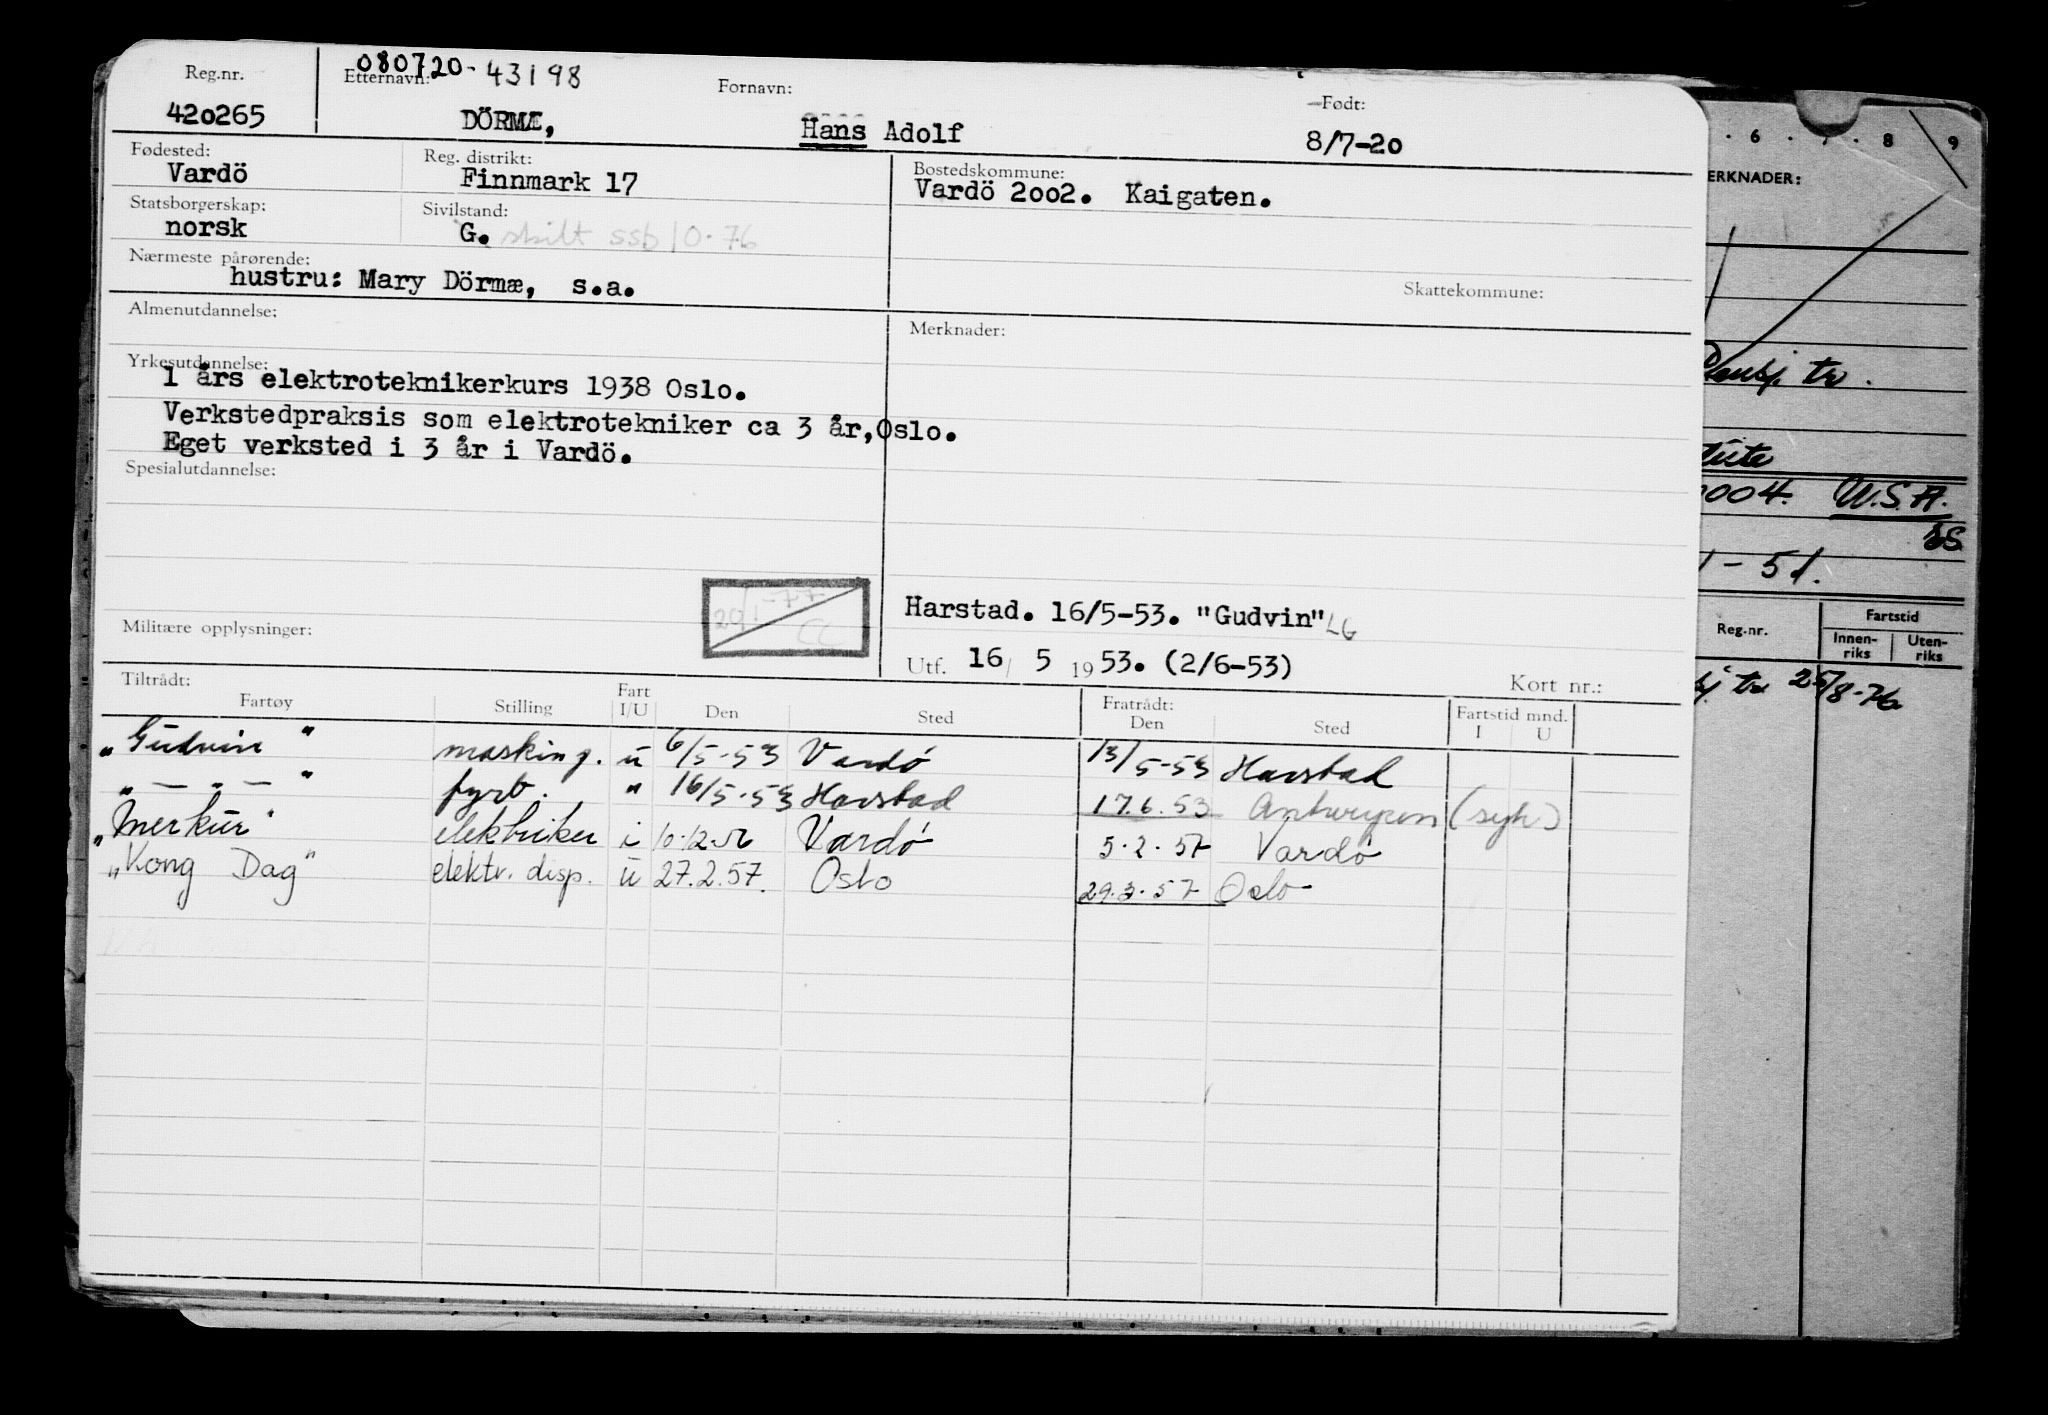 Reg.nr. 080720-43198
Etternavn: Fornavn: Født:
420265 DÖRMÆ, Hans Adolf 8/7-20
Fødested: Reg. distrikt: Bostedskommune:
Vardö Finnmark 17 Vardö 2002. Kaigaten.
Statsborgerskap: Sivilstand:
norsk G. skilt ssb 10.76
Nærmeste pårørende:
hustru: Mary Dörmæ, s.a. Skattekommune:
Almenutdannelse: Merknader:
Yrkesutdannelse:
1 års elektroteknikerkurs 1938 Oslo.
Verkstedpraksis som elektrotekniker ca 3 år,Oslo.
Eget verksted i 3 år i Vardö.
Spesialutdannelse:
29/1-77 CC
Harstad. 16/5-53. "Gudvin" LG
Militære opplysninger:
Utf. 16/ 5 1953. (2/6-53)
Tiltrådt: Kort nr.:
Fartøy Stilling Fart I/U Den Sted Fratrådt: Den Sted Fartstid mnd. I U
"Gudvin" masking. u 6/5-53 Vardö 13/5-53 Harstad
" — " — " fyrb. " 16/5-53 Harstad 17.6.53 Antwerpen (syk)
"Merkur" elektriker i 10.12.56 Vardö 5.2.57 Vardö
"Kong Dag" elektr. disp. u 27.2.57. Oslo 29.3.57 Oslo
6 7 8 9
ERKNADER:
tr.
004. U.S.A.
SS
1-51.
Reg.nr. Fartstid
Innen-riks Uten-riks
tr 25/8-76